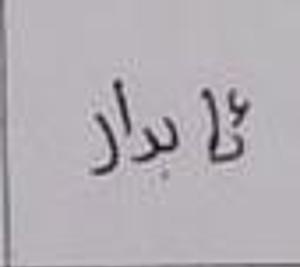 تا بدار